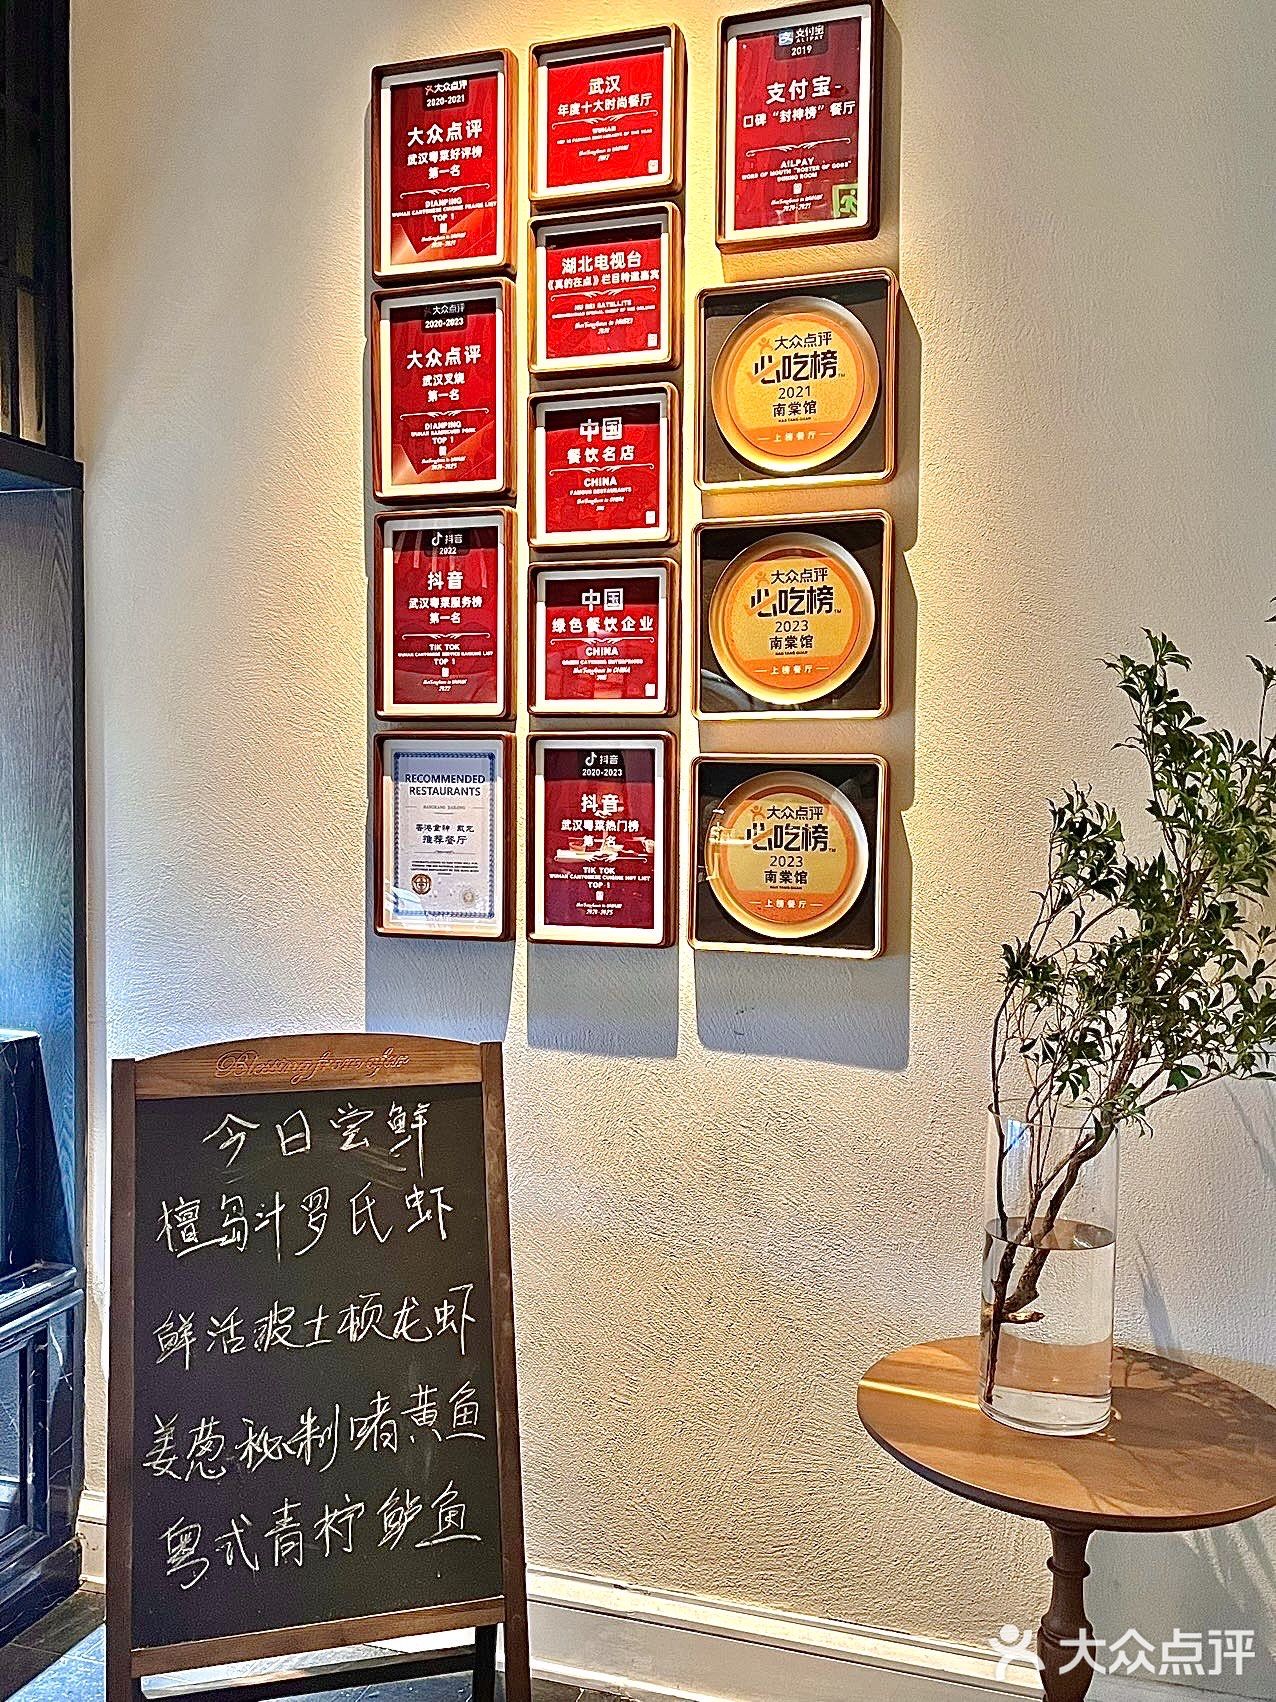 大众点评
2020-2021
大众点评
武汉粤菜好评榜
第一名
DIANPING
WUHAN CANTONESE CUISINE PRAISE LIST
TOP 1
2020-2021
大众点评
2020-2023
大众点评
武汉叉烧
第一名
DIANPING
TOP 1
抖音
2022
抖音
武汉粤菜服务榜
第一名
TIK TOK
WUHAN CANTONESE SERVICE RANKING LIST
TOP 1
2022
RECOMMENDED
RESTAURANTS
香港食神 戴龙
推荐餐厅
武汉
年度十大时尚餐厅
WUHAN
2017
湖北电视台
HU BEI SATELLITE
中国
餐饮名店
CHINA
FAMOUS RESTAURANTS
中国
绿色餐饮企业
CHINA
抖音
2020-2023
抖音
武汉粤菜热门榜
第一名
TIK TOK
WUHAN CANTONESE CUISINE HOT LIST
TOP 1
支付宝
ALIPAY
2019
支付宝-
口碑“封神榜”餐厅
AILPAY
WORD OF MOUTH "ROSTER OF GODS"
DINING ROOM
2020-2021
大众点评
必吃榜™
2021
南棠馆
NAN TANG GUAN
上榜餐厅
大众点评
必吃榜™
2023
南棠馆
NAN TANG GUAN
上榜餐厅
大众点评
必吃榜™
2023
南棠馆
NAN TANG GUAN
上榜餐厅
今日尝鲜
檀岛斗罗氏虾
鲜活波士顿龙虾
姜葱秘制啫黄鱼
粤式青柠鲈鱼
大众点评